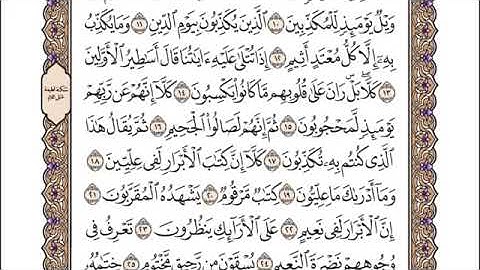 وَيْلٌ يَوْمَئِذٍ لِّلْمُكَذِّبِينَ ١٠ ٱلَّذِينَ يُكَذِّبُونَ بِيَوْمِ ٱلدِّينِ ١١ وَمَا يُكَذِّبُ
بِهِۦٓ إِلَّا كُلُّ مُعْتَدٍ أَثِيمٍ ١٢ إِذَا تُتْلَىٰ عَلَيْهِ ءَايَٰتُنَا قَالَ أَسَٰطِيرُ ٱلْأَوَّلِينَ
١٣ كَلَّا ۖ بَلْ ۜ رَانَ عَلَىٰ قُلُوبِهِم مَّا كَانُوا۟ يَكْسِبُونَ ١٤ كَلَّآ إِنَّهُمْ عَن رَّبِّهِمْ
يَوْمَئِذٍ لَّمَحْجُوبُونَ ١٥ ثُمَّ إِنَّهُمْ لَصَالُوا۟ ٱلْجَحِيمِ ١٦ ثُمَّ يُقَالُ هَٰذَا
ٱلَّذِى كُنتُم بِهِۦ تُكَذِّبُونَ ١٧ كَلَّآ إِنَّ كِتَٰبَ ٱلْأَبْرَارِ لَفِى عِلِّيِّينَ ١٨
وَمَآ أَدْرَىٰكَ مَا عِلِّيُّونَ ١٩ كِتَٰبٌ مَّرْقُومٌ ٢٠ يَشْهَدُهُ ٱلْمُقَرَّبُونَ ٢١
إِنَّ ٱلْأَبْرَارَ لَفِى نَعِيمٍ ٢٢ عَلَى ٱلْأَرَآئِكِ يَنظُرُونَ ٢٣ تَعْرِفُ فِى
وُجُوهِهِمْ نَضْرَةَ ٱلنَّعِيمِ ٢٤ يُسْقَوْنَ مِن رَّحِيقٍ مَّخْتُومٍ ٢٥ خِتَٰمُهُۥ